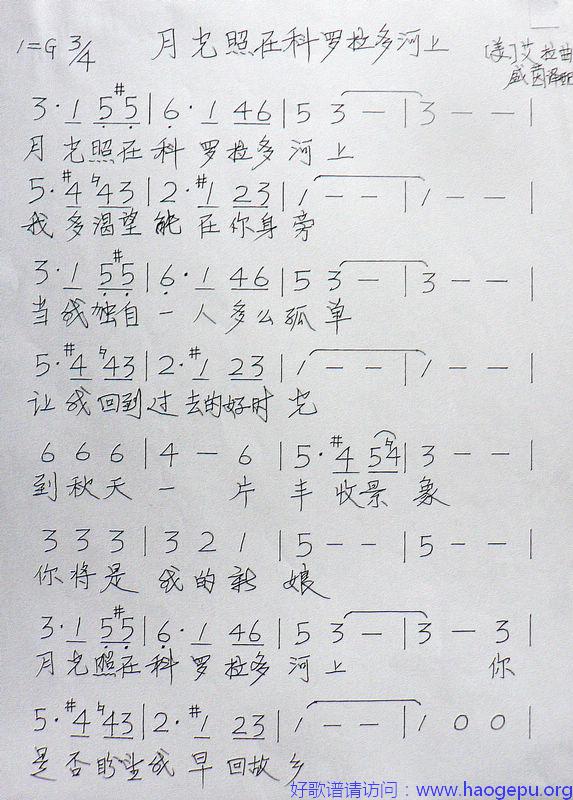 1=G 3/4 月光照在科罗拉多河上 [美]艾拉曲
盛茵译配
3· 1 5 #5 | 6· 1 4 6 | 5 3 — | 3 — — |
月光照在科罗拉多河上
5· #4 ♮4 3 | 2· #1 2 3 | 1 — — | 1 — — |
我多渴望能在你身旁
3· 1 5 #5 | 6· 1 4 6 | 5 3 — | 3 — — |
当我独自一人多么孤单
5· #4 ♮4 3 | 2· #1 2 3 | 1 — — | 1 — — |
让我回到过去的好时光
6 6 6 | 4 — 6 | 5· #4 5 ♮4 | 3 — — |
到秋天一片丰收景象
3 3 3 | 3 2 1 | 5 — — | 5 — — |
你将是我的新娘
3· 1 5 #5 | 6· 1 4 6 | 5 3 — | 3 — 3 |
月光照在科罗拉多河上 你
5· #4 4 3 | 2· #1 2 3 | 1 — — | 1 0 0 |
是否盼望我早回故乡
好歌谱请访问：www.haogepu.org